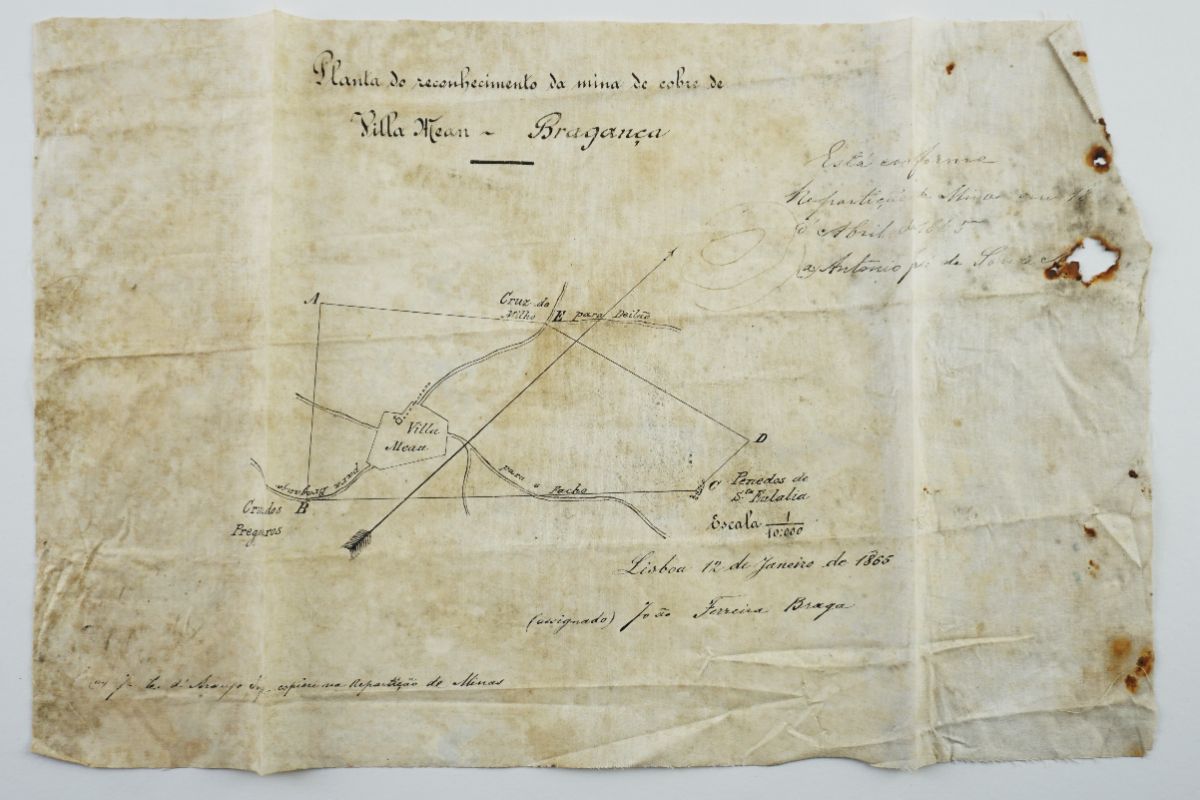 Planta do reconhecimento da mina de cobre de
Villa Mean - Bragança
Está conforme
Repartição de Minas em
d'Abril de 1865
(a) Antonio de Souza
A
Cruz do
Milho
E
para Deilão
Villa
Mean
D
para Bragança
para o Facho
B
Cruz dos
Pregaros
C
Penedos de
Sta Eulalia
Escala 1/10:000
Lisboa 12 de Janeiro de 1865
(assignado) João Ferreira Braga
d'Araujo copiei na Repartição de Minas